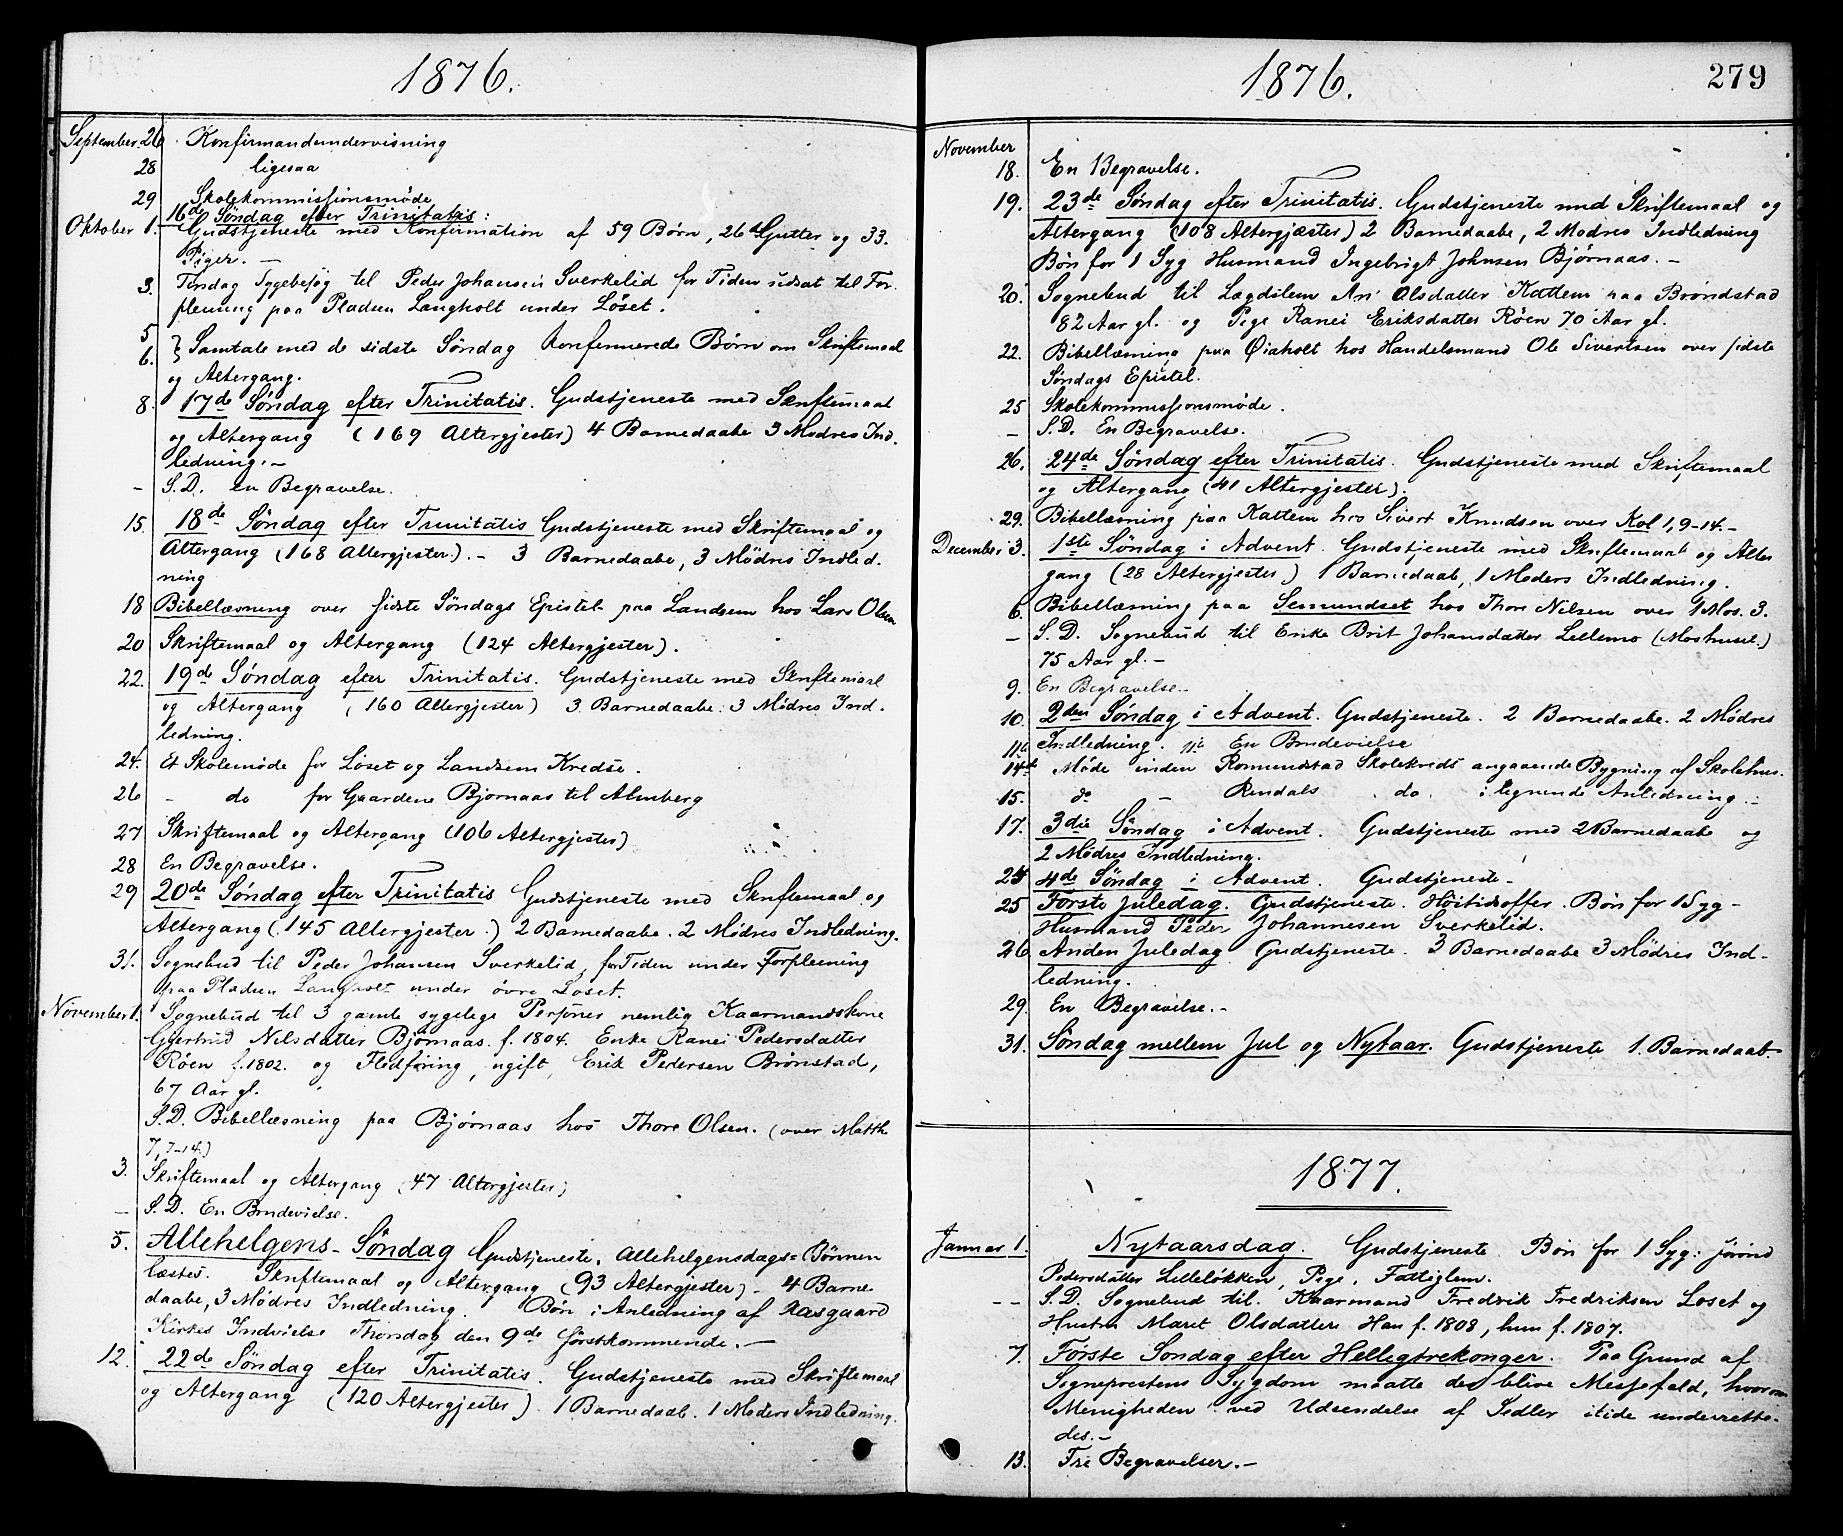 1876.
September 26. Konfirmandundervisning
28 ligesaa
29 Skolekommissionsmøde
16de Søndag efter Trinitatis:
Oktober 1. Gudstjeneste med Konfirmation af 59 Børn, 26 Gutter og 33.
Piger. —
3. Tirsdag Sygebesøg til Peder Johansen Sverkelid for Tiden udsat til For-
pleining paa Pladsen Langholt under Løset.
5
6. } Samtale med de sidste Søndag Konfirmerede Børn om Skriftemaal
og Altergang.
8. 17de Søndag efter Trinitatis. Gudstjeneste med Skriftemaal
og Altergang (169 Altergjester) 4 Barnedaabe 3 Mødres Ind-
ledning. —
— S.D. en Begravelse.
15. 18de Søndag efter Trinitatis Gudstjeneste med Skriftemaal og
Altergang (168 Altergjester.). — 3 Barnedaabe, 3 Mødres Indled-
ning
18 Bibellæsning over sidste Søndags Epistel paa Landsem hos Lars Olsen
20 Skriftemaal og Altergang (124 Altergjester).
22. 19de Søndag efter Trinitatis. Gudstjeneste med Skriftemaal
og Altergang (160 Altergjester) 3 Barnedaabe. 3 Mødres Ind-
ledning.
24. Et Skolemøde for Løset og Landsem Kredse.
26 — do for Gaardene Bjørnaas til Almberg
27 Skriftemaal og Altergang (106 Altergjester)
28 En Begravelse.
29 20de Søndag efter Trinitatis Gudstjeneste med Skriftemaal og
Altergang (145 Altergjester.) 2 Barnedaabe. 2 Mødres Indledning.
31. Sognebud til Peder Johansen Sverkelid, for Tiden under Forpleining
paa Pladsen Langholt under øvre Løset.
November 1. Sognebud til 3 gamle sygelige Personer nemlig Kaarmandskone
Gjertrud Nilsdatter Bjørnaas. f. 1804. Enke Ranei Pedersdatter
Røen f. 1802. og Fledføring, ugift, Erik Pedersen Brønstad,
67 Aar gl.
S.D. Bibellæsning paa Bjørnaas hos Thore Olsen. (over Matth
7, 7-14.)
3. Skriftemaal og Altergang (47 Altergjester)
— S.D. En Brudevielse.
5. Allehelgens-Søndag Gudstjeneste. Allehelgensdags-Bønnen
læstes. Skriftemaal og Altergang (93 Altergjester) — 4 Barne-
daabe, 3 Mødres Indledning. Bøn i Anledning af Aasgaard
Kirkes Indvielse Thorsdag den 9de førstkommende. —
12. 22de Søndag efter Trinitatis. Gudstjeneste med Skriftemaal
og Altergang (120 Altergjester). 1 Barnedaab. 1 Moders Indledning.
1876. 279
November
18. En Begravelse.
19. 23de Søndag efter Trinitatis. Gudstjeneste med Skriftemaal og
Altergang (108 Altergjæster) 2 Barnedaabe, 2 Mødres Indledning
Bøn for 1 Syg Husmand Ingebrigt Johnsen Bjørnaas. —
20. Sognebud til Lægdslem Ari Olsdatter Kattem paa Brøndstad
82 Aar gl. og Pige Ranei Eriksdatter Røen 70 Aar gl.
22. Bibellæsning paa Øiaholt hos Handelsmand Ole Sivertsen over sidste
Søndags Epistel.
25 Skolekommissionsmøde.
— S.D. En Begravelse.
26. 24de Søndag efter Trinitatis. Gudstjeneste med Skriftemaal
og Altergang (41 Altergjester).
29. Bibellæsning paa Kattem hos Sivert Knudsen over Kol 1, 9-14. —
December 3. 1ste Søndag i Advent. Gudstjeneste med Skriftemaal og Alter
gang (28 Altergjester) 1 Barnedaab, 1 Moders Indledning.
6. Bibellæsning paa Semundset hos Thore Nilsen over 1 Mos. 3.
— S.D. Sognebud til Enke Brit Johansdatter Lillemo (Moshusel.)
75 Aar gl. —
9. En Begravelse. —
10. 2den Søndag i Advent. Gudstjeneste. 2 Barnedaabe. 2 Mødres
Indledning. 11te En Brudevielse
14de Møde inden Romundstad Skolekreds angaaende Bygning af Skolehus.
15. do — Rindals do. i lignende Anledning. —
17. 3die Søndag i Advent. Gudstjeneste med 2 Barnedaabe og
2 Mødres Indledning.
24 4de Søndag i Advent. Gudstjeneste —
25 Første Juledag. Gudstjeneste. Høitidsoffer. Bøn for 1 Syg —
Husmand Peder Johannesen Sverkelid.
26 Anden Juledag Gudstjeneste. 3 Barnedaabe 3 Mødres Ind-
ledning.
29. En Begravelse. —
31. Søndag mellem Jul og Nytaar. Gudstjeneste 1. Barnedaab
1877.
Januar 1. Nytaarsdag. Gudstjeneste Bøn for 1 Syg: Jørond
Pedersdatter Lilleløkken, Pige, Fattiglem.
— S.D. Sognebud til. Kaarmand Fredrik Fredriksen Løset og
Hustru Maret Olsdatter Han f. 1808, hun f. 1807.
7. Første Søndag efter Helligtrekonger. Paa Grund af
Sogneprestens Sygdom maatte der blive Messefald, hvorom
Menigheden ved Udsendelse af Sedler itide underrette-
des. —
13. Tre Begravelser. —